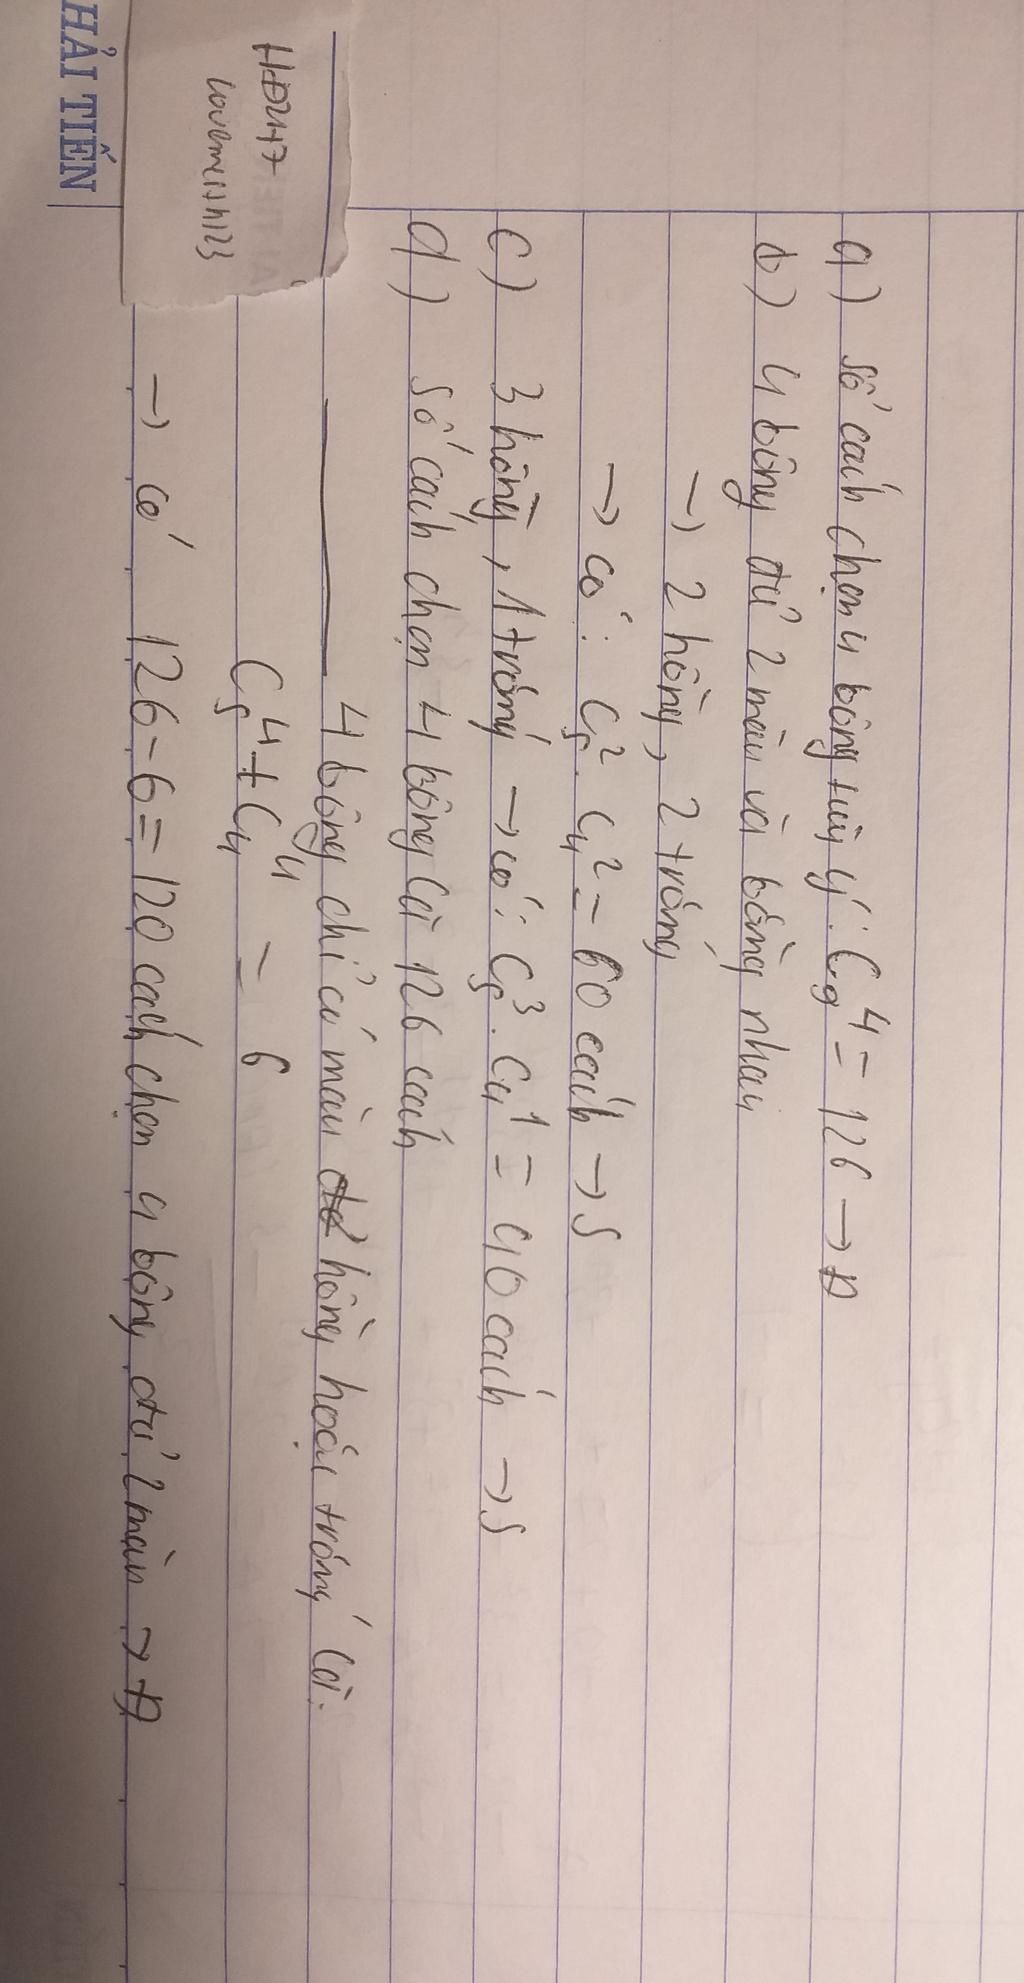 a) số cách chọn 4 bông tùy ý: C₉⁴ = 126 → Đ
b) 4 bông đủ 2 màu và bằng nhau
→ 2 hồng, 2 trắng
→ có: C₅². C₄² = 60 cách → S
c) 3 hồng, 1 trắng → có: C₅³. C₄¹ = 40 cách → S
d) số cách chọn 4 bông là 126 cách
4 bông chỉ có màu hồng hoặc trắng là:
C₅⁴ + C₄⁴ = 6
→ có 126 - 6 = 120 cách chọn 4 bông đủ 2 màu → Đ
HĐ247
HẢI TIẾN